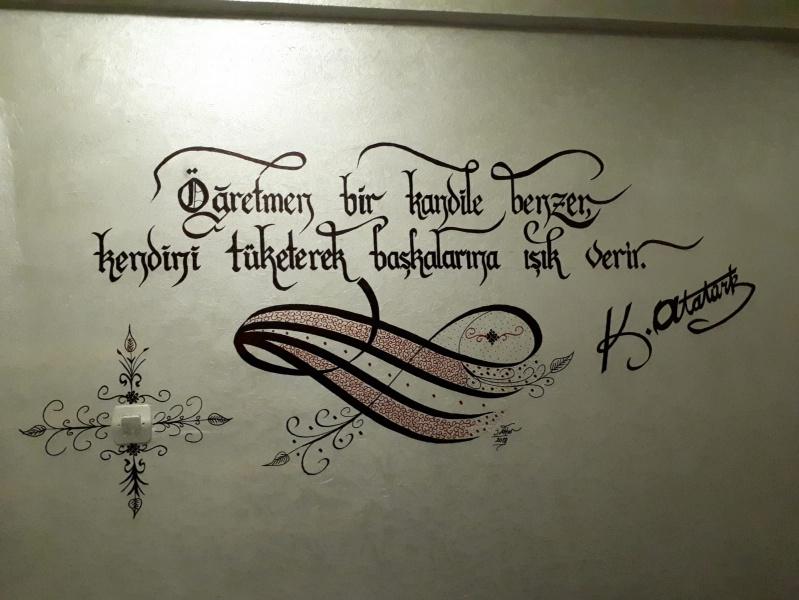 Öğretmen bir kandile benzer,
kendini tüketerek başkalarına ışık verir.
K. Atatürk
2018